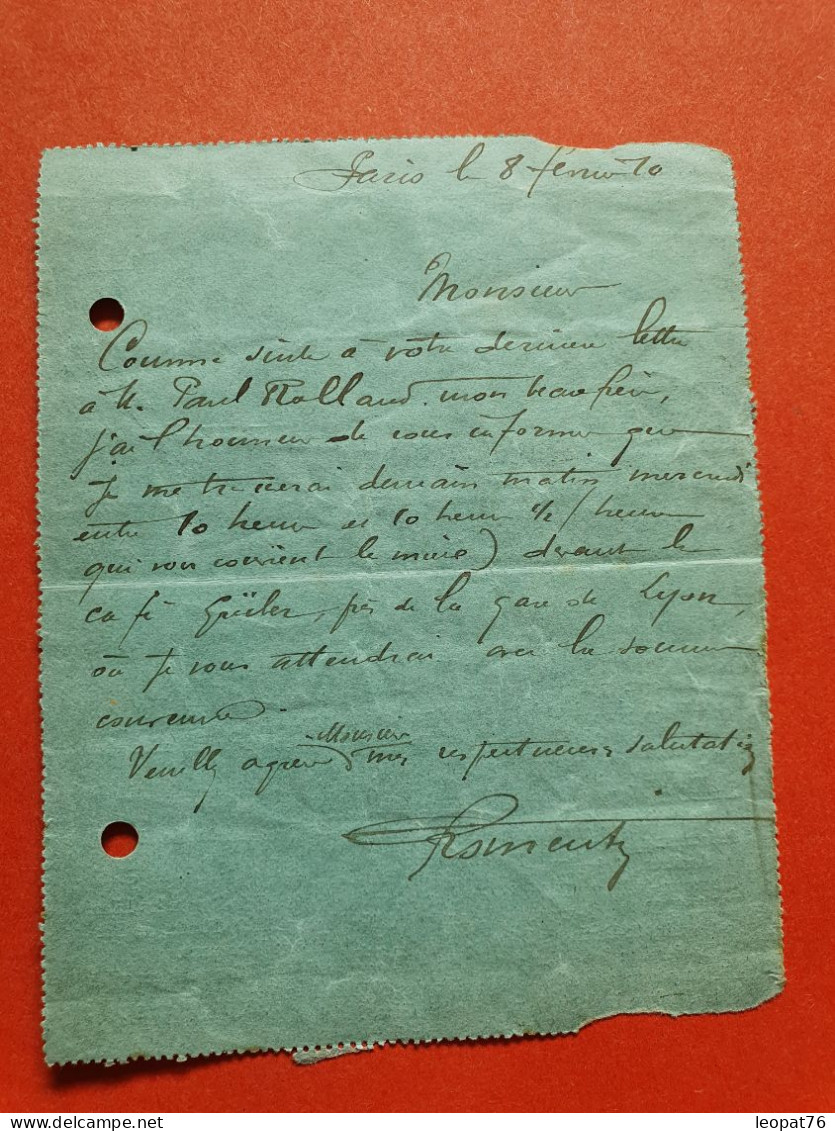 Paris le 8 février 10
Monsieur
Comme suite à votre dernière lettre
à M. Paul Rolland mon beau frère,
j'ai l'honneur de vous informer que
je me trouverai demain matin mercredi
entre 10 heures et 10 heures 1/2 (heure
qui vous convient le mieux) devant le
café près de la gare de Lyon,
où je vous attendrai avec la somme
convenue.
Veuillez agréer Monsieur mes respectueuses salutations
delcampe.net
leopat76